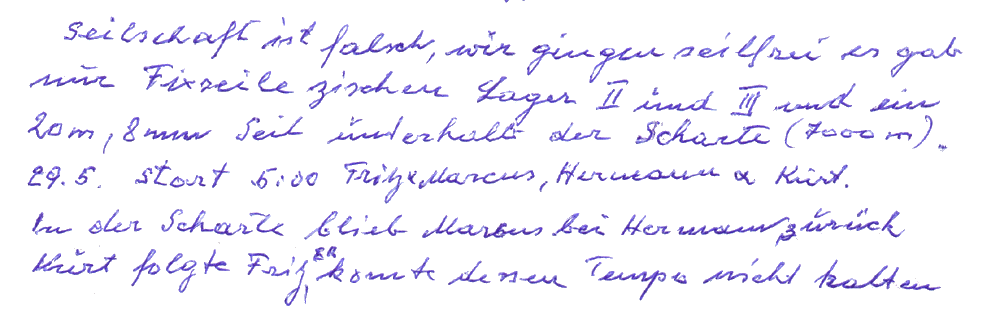 Seilschaft ist falsch, wir gingen seilfrei es gab
nur Fixseile zischen Lager II und III und ein
20m, 8mm Seil underhalb der Scharte (7000m).
29.5. Start 5:00 Fritz & Marcus, Hermann & Kurt.
In der Scharte blieb Marcus bei Hermann zurück
Kurt folgte Fritz, ER konte dessen Tempo nicht halten